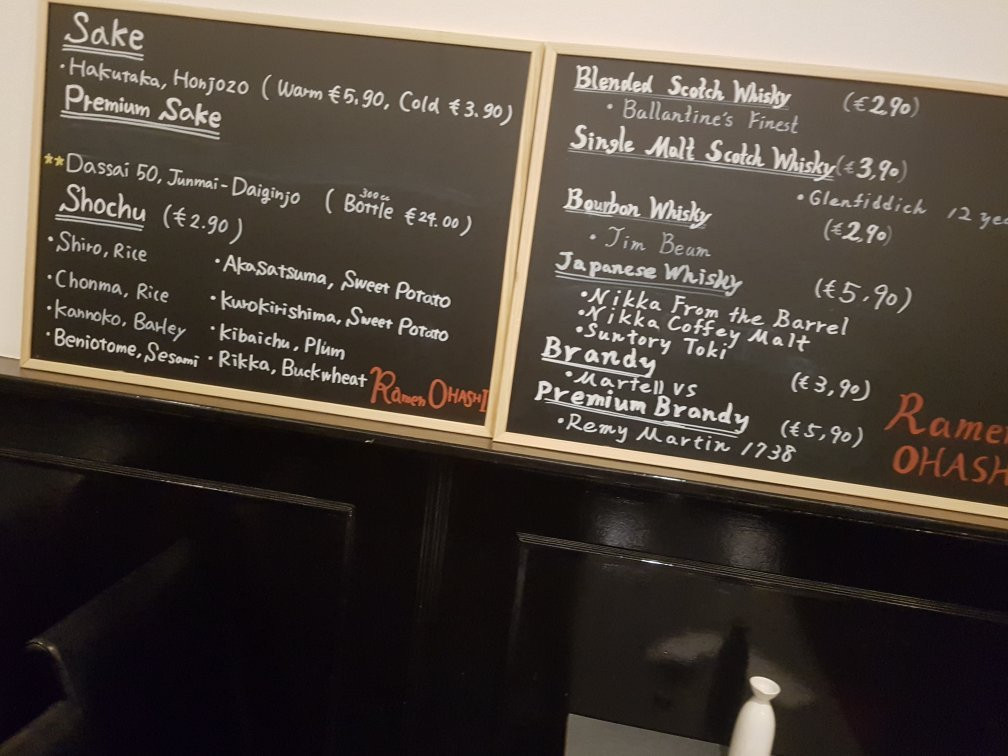 Sake
·Hakutaka, Honjozo (Warm €5.90, Cold €3.90)
Premium Sake
**Dassai 50, Junmai-Daiginjo (300cc Bottle €24.00)
Shochu (€2.90)
·Shiro, Rice
·Chonma, Rice
·Kannoko, Barley
·Beniotome, Sesami
·Akasatsuma, Sweet Potato
·Kurokirishima, Sweet Potato
·Kibaichu, Plum
·Rikka, Buckwheat
Ramen OHASHI
Blended Scotch Whisky (€2,90)
·Ballantine's Finest
Single Malt Scotch Whisky (€3,90)
·Glenfiddich 12 yea
Bourbon Whisky (€2,90)
·Jim Beam
Japanese Whisky (€5,90)
·Nikka From the Barrel
·Nikka Coffey Malt
·Suntory Toki
Brandy (€3,90)
·Martell VS
Premium Brandy (€5,90)
·Remy Martin 1738
Ramen
OHASH